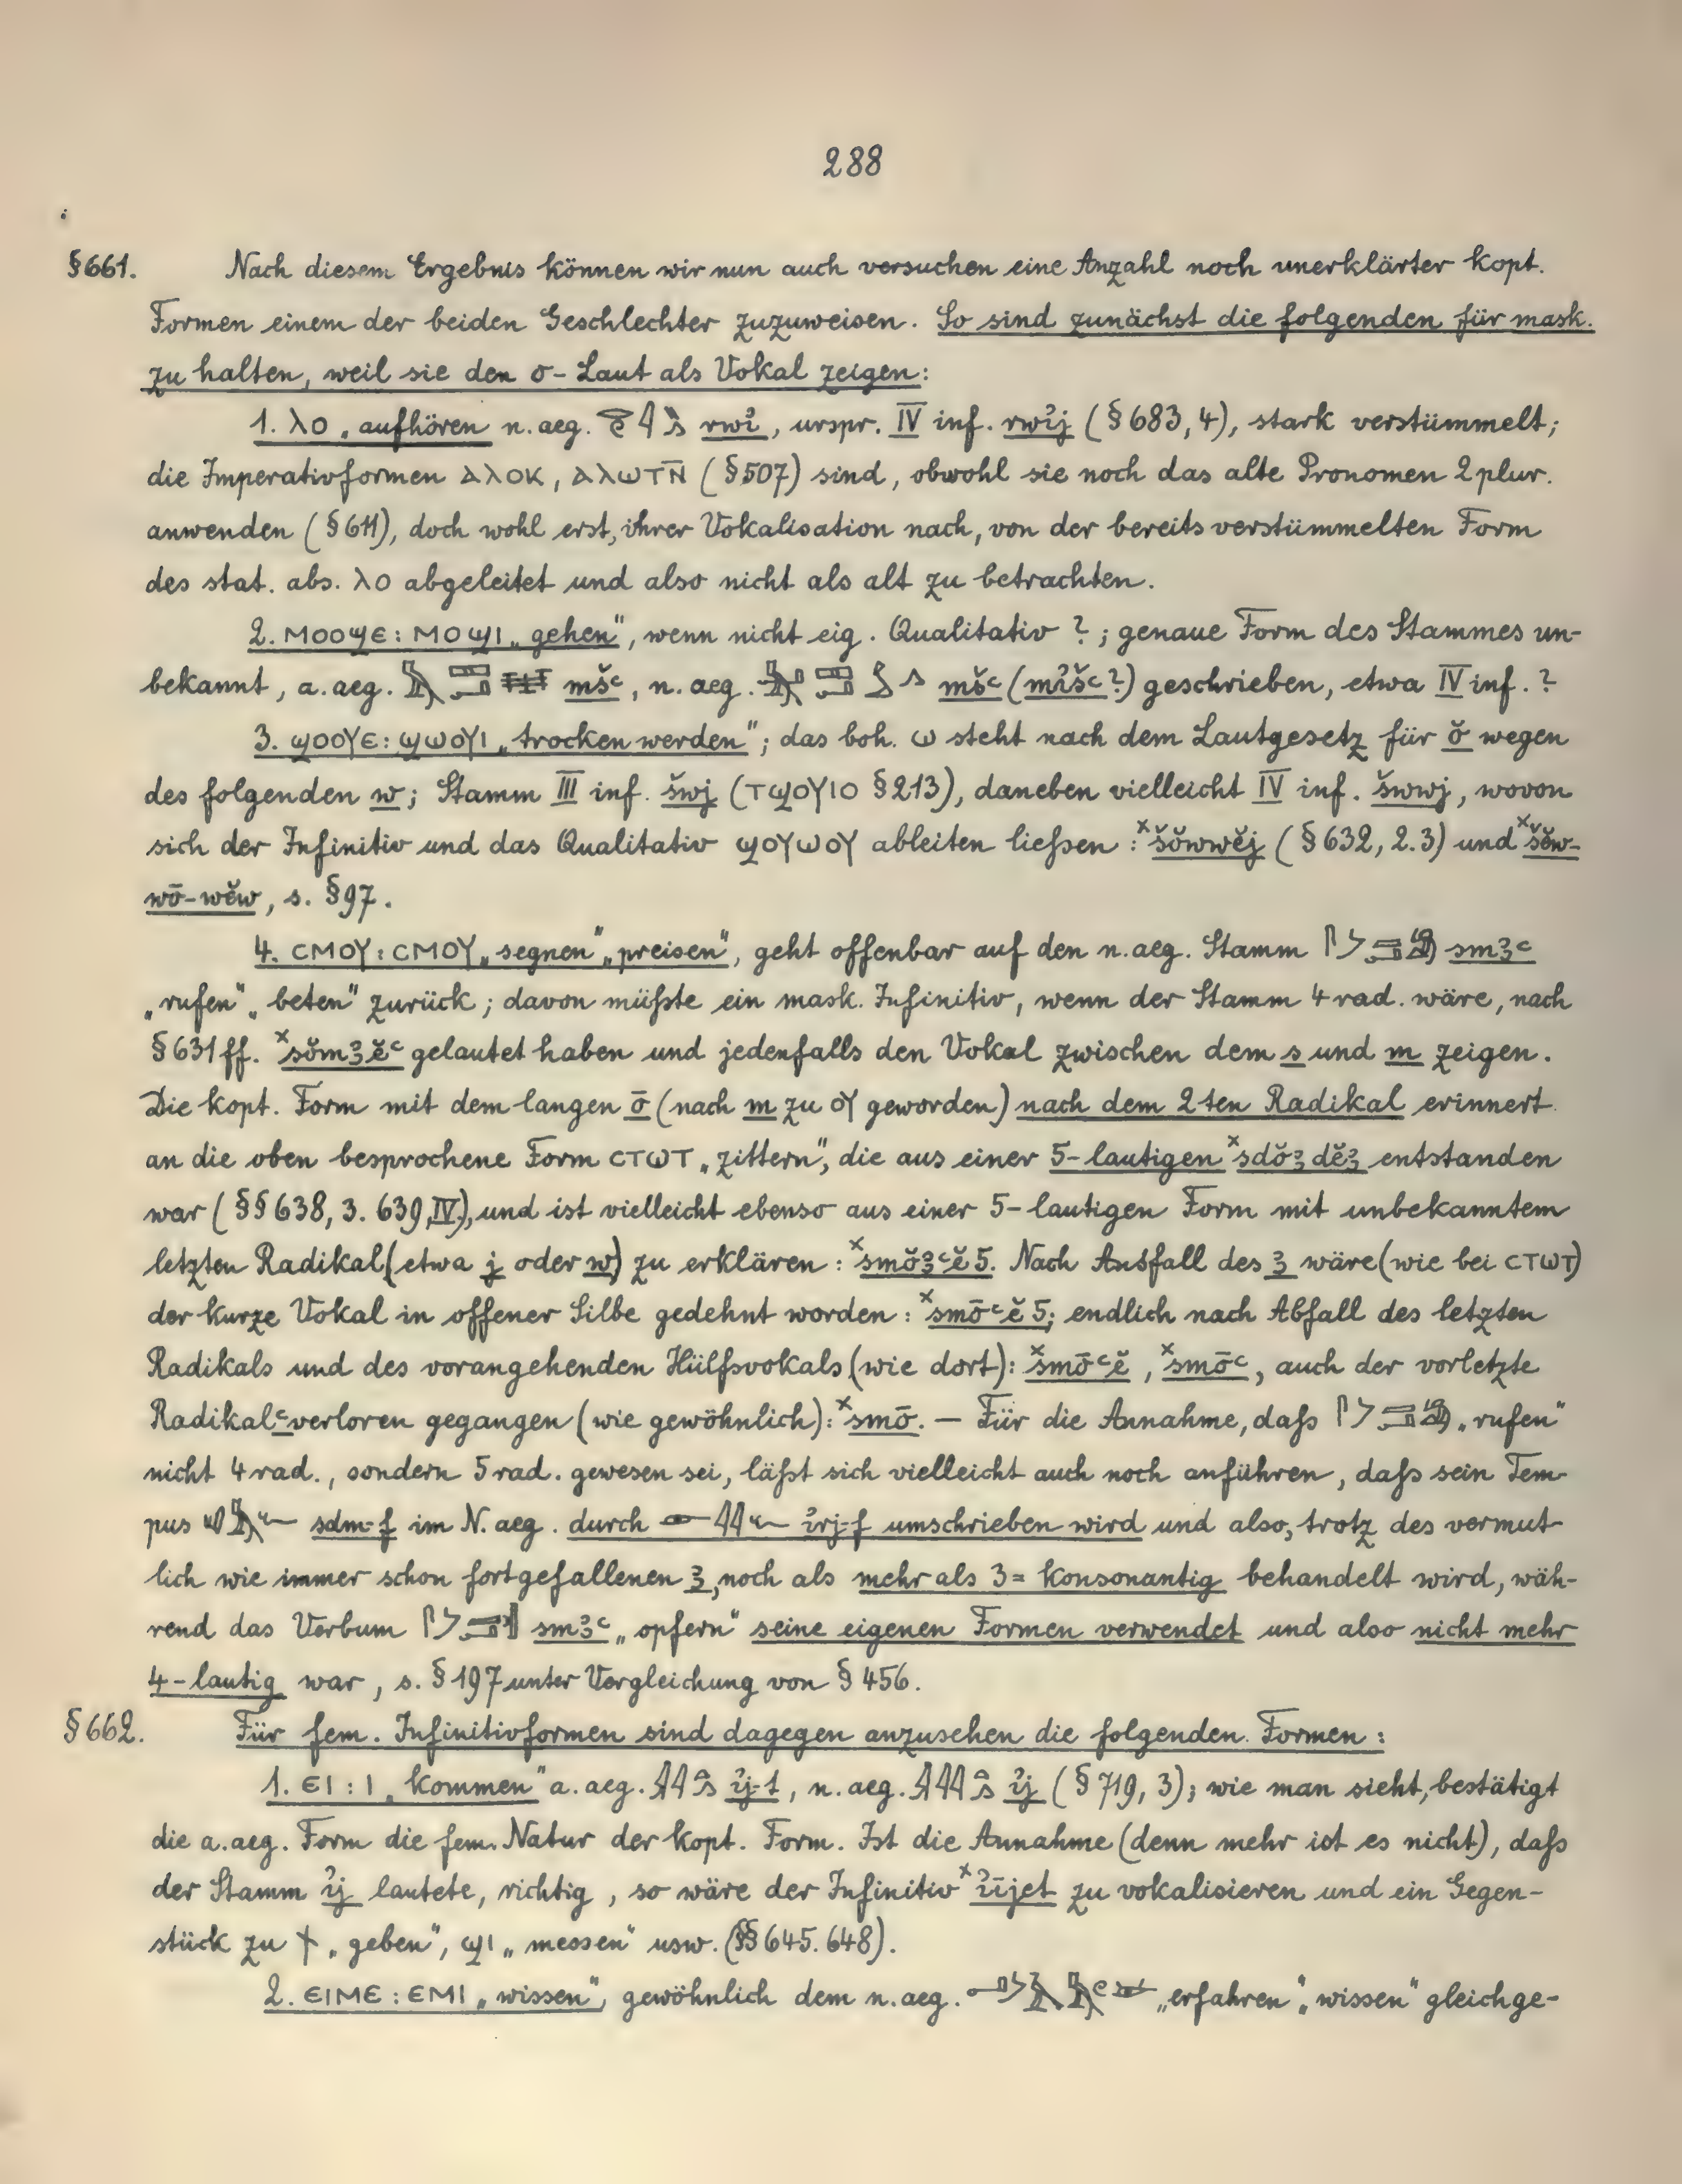 288
§661. Nach diesem Ergebnis können wir nun auch versuchen eine Anzahl noch unerklärter kopt.
Formen einem der beiden Geschlechter zuzuweisen. So sind zunächst die folgenden für mask.
zu halten, weil sie den o-Laut als Vokal zeigen:
1. ⲗⲟ „aufhören n.aeg. rwꞽ, urspr. IV inf. rwꞽj (§683,4), stark verstümmelt;
die Imperativformen ⲁⲗⲟⲕ, ⲁⲗⲱⲧⲛ̄ (§507) sind, obwohl sie noch das alte Pronomen 2 plur.
anwenden (§611), doch wohl erst, ihrer Vokalisation nach, von der bereits verstümmelten Form
des stat. abs. ⲗⲟ abgeleitet und also nicht als alt zu betrachten.
2. ⲙⲟⲟϣⲉ: ⲙⲟϣⲓ „gehen", wenn nicht eig. Qualitativ?; genaue Form des Stammes un-
bekannt, a.aeg. mšꜥ, n.aeg. mšꜥ (mꞽšꜥ?) geschrieben, etwa IV inf.?
3. ϣⲟⲟⲩⲉ: ϣⲱⲟⲩⲓ „trocken werden"; das boh. ⲱ steht nach dem Lautgesetz für ŏ wegen
des folgenden w; Stamm III inf. šwj (ⲧϣⲟⲩⲓⲟ §213), daneben vielleicht IV inf. šwwj, wovon
sich der Infinitiv und das Qualitativ ϣⲟⲩⲱⲟⲩ ableiten ließen: ˣšŏwwĕj (§632,2.3) und ˣšĕw-
wō-wĕw, s. §97.
4. ⲥⲙⲟⲩ: ⲥⲙⲟⲩ „segnen" „preisen", geht offenbar auf den n.aeg. Stamm smꜣꜥ
„rufen" „beten" zurück; davon müßte ein mask. Infinitiv, wenn der Stamm 4 rad. wäre, nach
§631ff. ˣsŏmꜣĕꜥ gelautet haben und jedenfalls den Vokal zwischen dem s und m zeigen.
Die kopt. Form mit dem langen ō (nach m zu ⲟⲩ geworden) nach dem 2ten Radikal erinnert
an die oben besprochene Form ⲥⲧⲱⲧ „zittern", die aus einer 5-lautigen ˣsdŏꜣdĕꜣ entstanden
war (§§638,3. 639,IV), und ist vielleicht ebenso aus einer 5-lautigen Form mit unbekanntem
letzten Radikal (etwa j oder w) zu erklären: ˣsmŏꜣꜥĕ5. Nach Ausfall des ꜣ wäre (wie bei ⲥⲧⲱⲧ)
der kurze Vokal in offener Silbe gedehnt worden: ˣsmōꜥĕ5; endlich nach Abfall des letzten
Radikals und des vorangehenden Hülfsvokals (wie dort): ˣsmōꜥĕ, ˣsmōꜥ, auch der vorletzte
Radikal ꜥ verloren gegangen (wie gewöhnlich): ˣsmō. — Für die Annahme, daß „rufen"
nicht 4 rad., sondern 5 rad. gewesen sei, läßt sich vielleicht auch noch anführen, daß sein Tem-
pus sdm-f im N.aeg. durch ꞽrj-f umschrieben wird und also, trotz des vermut-
lich wie immer schon fortgefallenen ꜣ, noch als mehr als 3=konsonantig behandelt wird, wäh-
rend das Verbum smꜣꜥ „opfern" seine eigenen Formen verwendet und also nicht mehr
4-lautig war, s. §197 unter Vergleichung von §456.
§662. Für fem. Infinitivformen sind dagegen anzusehen die folgenden Formen:
1. ⲉⲓ: ⲓ „kommen" a.aeg. ꞽj-t, n.aeg. ꞽj (§719,3); wie man sieht, bestätigt
die a.aeg. Form die fem. Natur der kopt. Form. Ist die Annahme (denn mehr ist es nicht), daß
der Stamm ꞽj lautete, richtig, so wäre der Infinitiv ˣꞽījet zu vokalisieren und ein Gegen-
stück zu ϯ „geben", ϣⲓ „messen" usw. (§§645.648).
2. ⲉⲓⲙⲉ: ⲉⲙⲓ „wissen", gewöhnlich dem n.aeg. „erfahren", „wissen" gleichge-